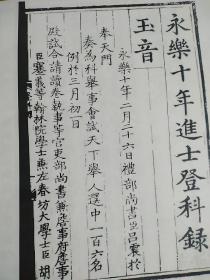 永樂十年進士登科錄
玉音
永樂十年二月二十六日禮部尚書臣呂震於
奉天門
奏為科舉事會試天下舉人選中一百六名
例於三月初一
殿試合請讀卷執事等官吏部尚書兼詹事府詹事
臣蹇義等翰林院學士兼左春坊大學士臣胡